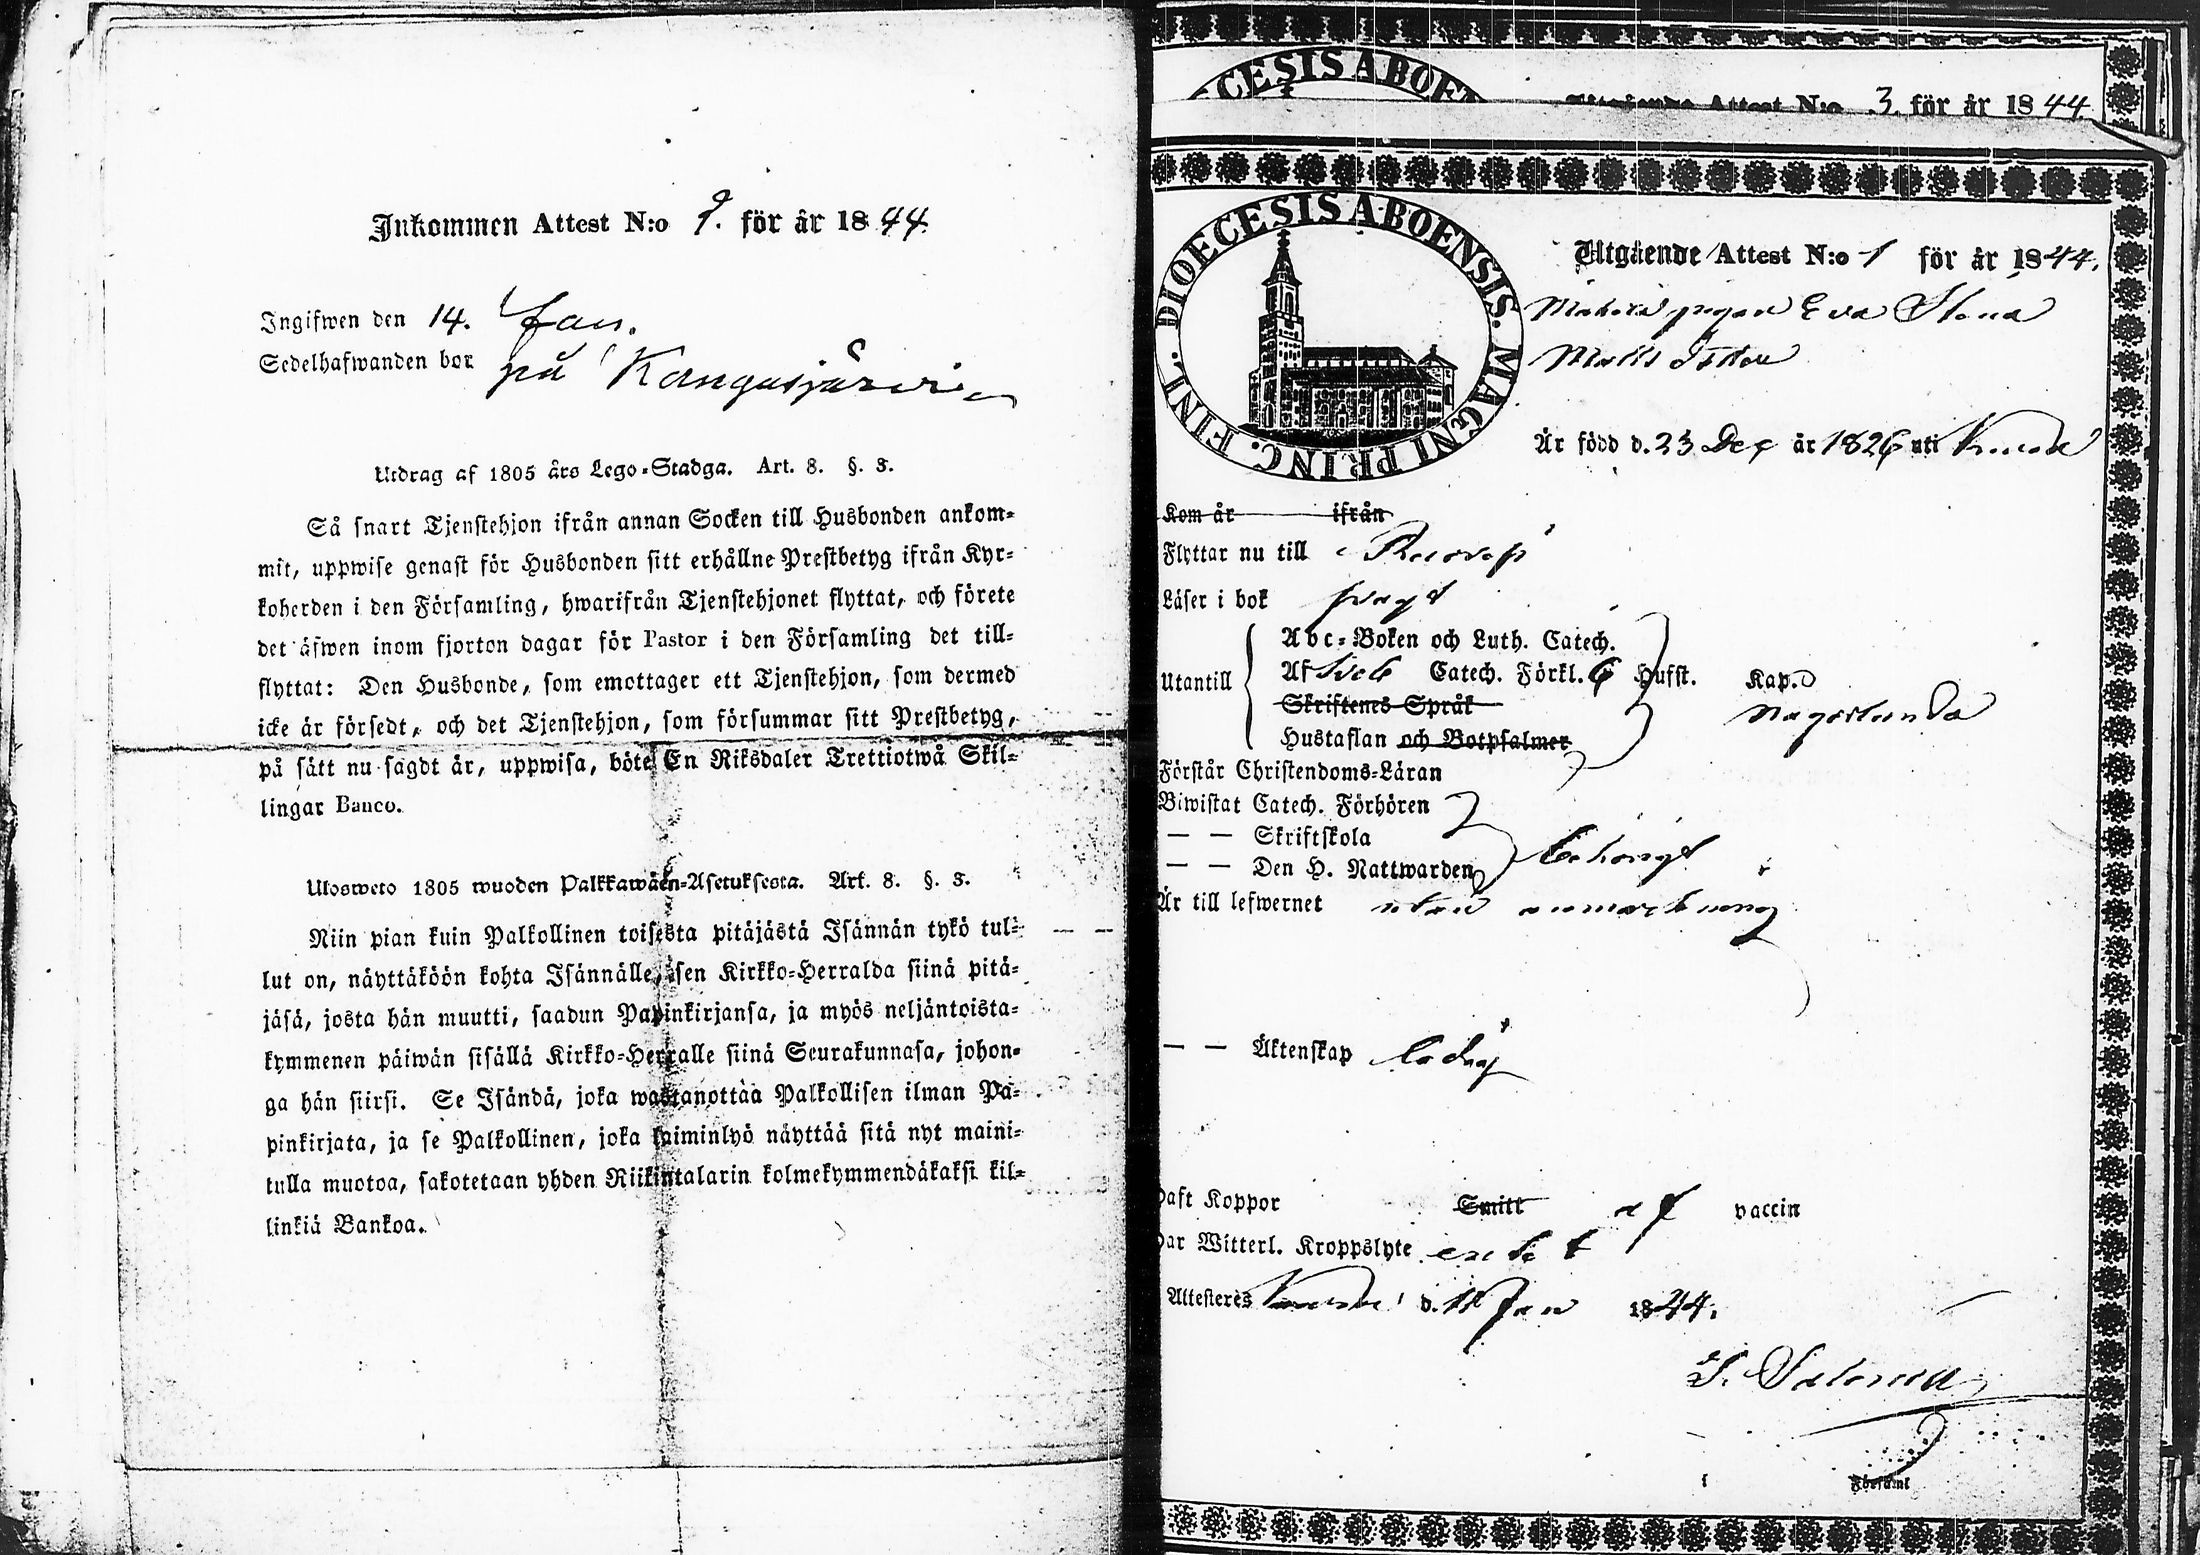 Inkommen Attest N:o 9. för år 1844.
Ingifwen den 14. Jan.
Sedelhafwanden bor på Kangasjärvi
Utdrag af 1805 års Lego-Stadga. Art. 8. §. 3.
Så snart Tjenstehjon ifrån annan Socken till Husbonden ankom-
mit, uppwise genast för Husbonden sitt erhållne Prestbetyg ifrån Kyr-
koherden i den Församling, hwarifrån Tjenstehjonet flyttat, och förete
det äfwen inom fjorton dagar för Pastor i den Församling det till-
flyttat: Den Husbonde, som emottager ett Tjenstehjon, som dermed
icke är försedt, och det Tjenstehjon, som försummar sitt Prestbetyg,
på sätt nu sagdt är, uppwisa, böte En Riksdaler Trettiotwå Skil-
lingar Banco.
Ulosweto 1805 wuoden Palkkawäen-Asetuksesta. Art. 8. §. 3.
Niin pian kuin Palkollinen toisesta pitäjästä Isännän tykö tul-
lut on, näyttäköön kohta Isännälle, sen Kirkko-Herralda siinä pitä-
jäsä, josta hän muutti, saadun Papinkirjansa, ja myös neljäntoista-
kymmenen päiwän sisällä Kirkko-Herralle siinä Seurakunnasa, johon-
ga hän siirsi. Se Isändä, joka wastanottaa Palkollisen ilman Pa-
pinkirjata, ja se Palkollinen, joka laiminlyö näyttää sitä nyt maini-
tulla muotoa, sakotetaan yhden Riikintalarin kolmekymmendäkaksi kil-
linkiä Bankoa.
CESIS ABOEN
Utgående Attest N:o 3. för år 1844
DIOECESIS ABOENSIS. MAGNI PRINC. FINL.
Utgående Attest N:o 1 för år 1844.
pigan Eva Stina
Matts
Är född d. 23 Dec år 1826 uti
Kom år ifrån
Flyttar nu till
Läser i bok
Utantill
Abc-Boken och Luth. Catech.
Af Sveb Catech. Förkl. 6 Hufst. Kap.
Skriftenes Språk någorlunda
Hustaflan och Botpsalmer
Förstår Christendoms-Läran
Biwistat Catech. Förhören
— — Skriftskola
— — Den H. Nattwarden behörigt
Är till lefwernet utan anmärkning
— — Äktenskap ledig
Haft Koppor Smitt af vaccin
Har Witterl. Kroppslyte
Attesteres d. 11 Jan 1844.
Församl